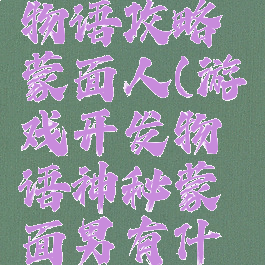 物语攻略
蒙面人(游
戏开发物
语神秘蒙
面男有什